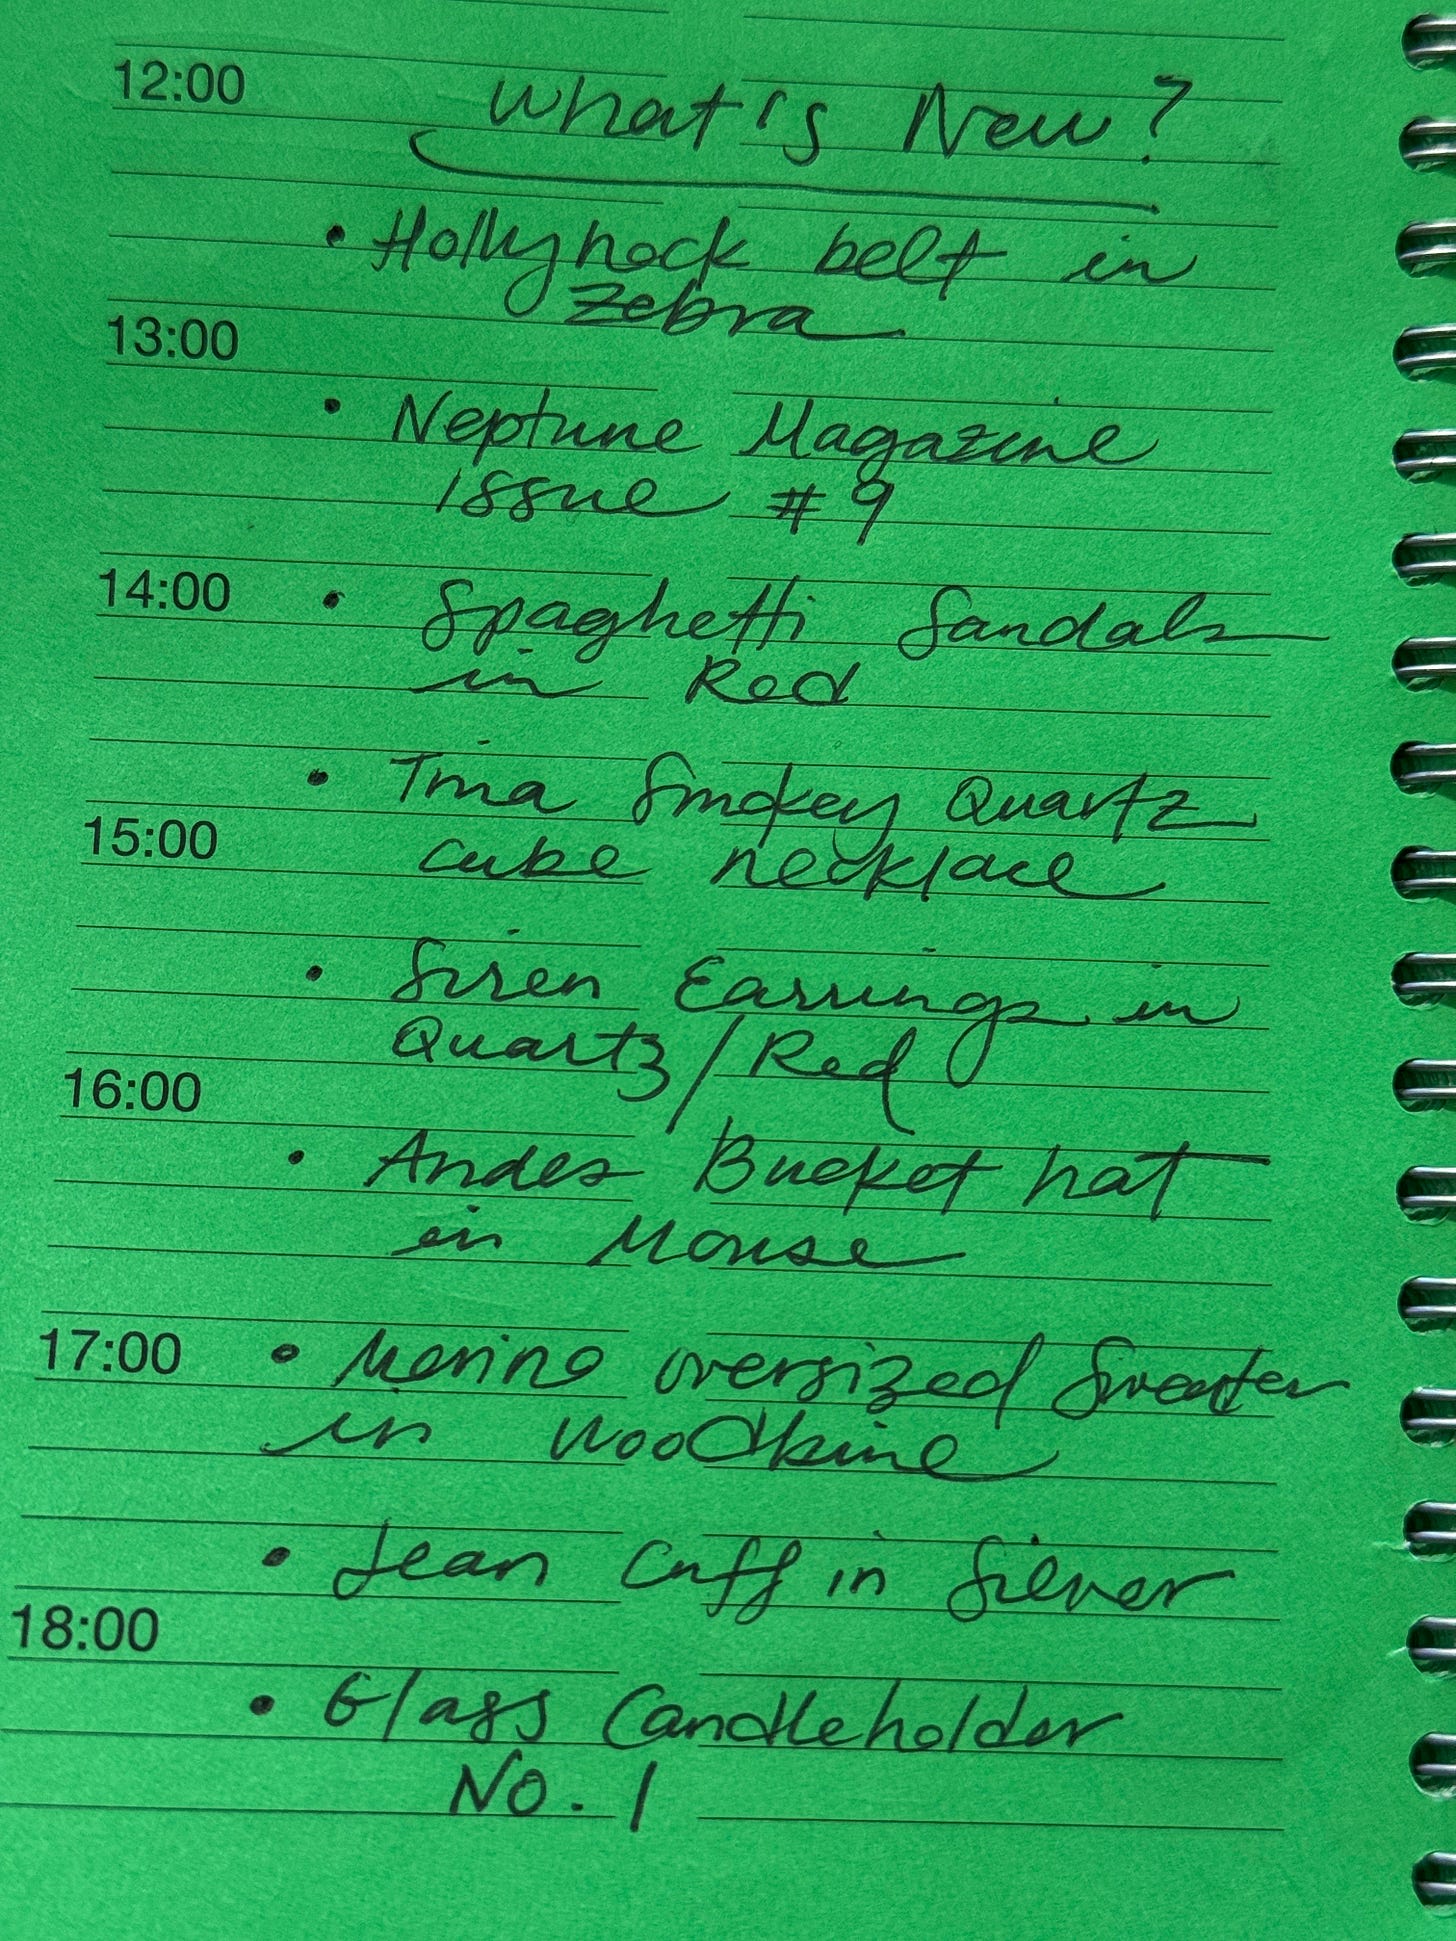 12:00 What's New?
• Hollyhock belt in
Zebra
13:00
• Neptune Magazine
Issue #9
14:00 • Spaghetti Sandals
in Red
• Tina Smokey Quartz
15:00 cube necklace
• Siren Earrings in
Quartz/Red
16:00
• Andes Bucket hat
in Mouse
17:00 • Merino oversized Sweater
in Woodbine
• Jean Cuff in Silver
18:00
• Glass Candleholder
No. 1